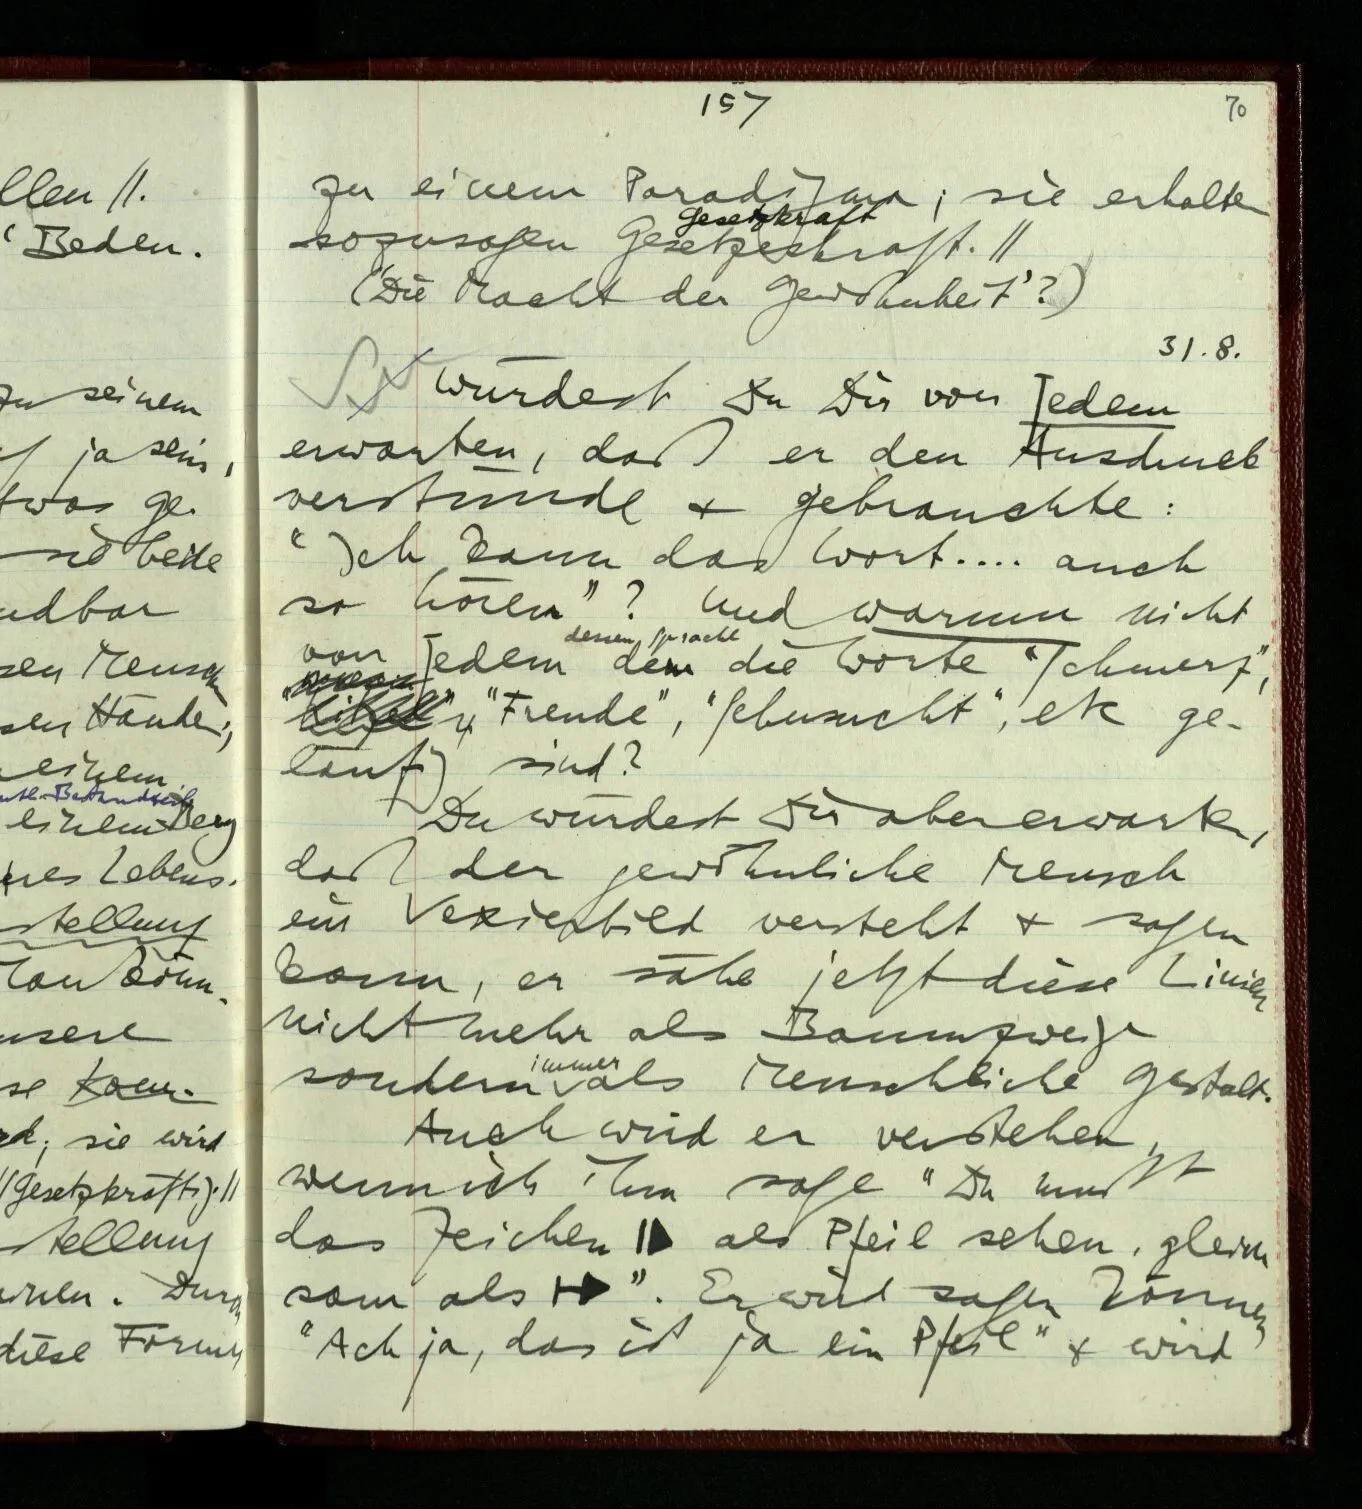 157
70
llen //.
Beden.
zu seinem
ja sein,
twas ge-
sie beide
ndbar
sen Mensch
sen Hände;
einem
einem Berg
nes Lebens-
stellung
Man könn-
nsere
se
sie wird
//gesetzkräftig.//
stellung
Durch
diese Formen
zu einem Paradigma; sie erhalten
Gesetzkraft
sozusagen Gesetzeskraft. //
('Die Macht der Gewohnheit'?)
31.8.
Würdest Du Dir von Jedem
erwarten, daß er den Ausdruck
verstünde & gebrauchte:
“Ich kann das Wort.... auch
so hören”? Und warum nicht
dessen Sprache
von Jedem dem die Worte “Schmerz”,
“Freude”, “Sehnsucht”, etc ge-
läufig sind?
Du würdest Dir aber erwarten,
daß der gewöhnliche Mensch
ein Vexierbild versteht & sagen
kann, er sähe jetzt diese Linien
nicht mehr als Baumzweige
immer
sondern als menschliche Gestalt.
Auch wird er verstehen,
wenn ich ihm sage “Du mußt
das Zeichen als Pfeil sehen, gleich
sam als ”. Er wird sagen können
“Ach ja, das ist ja ein Pfeil” & wird